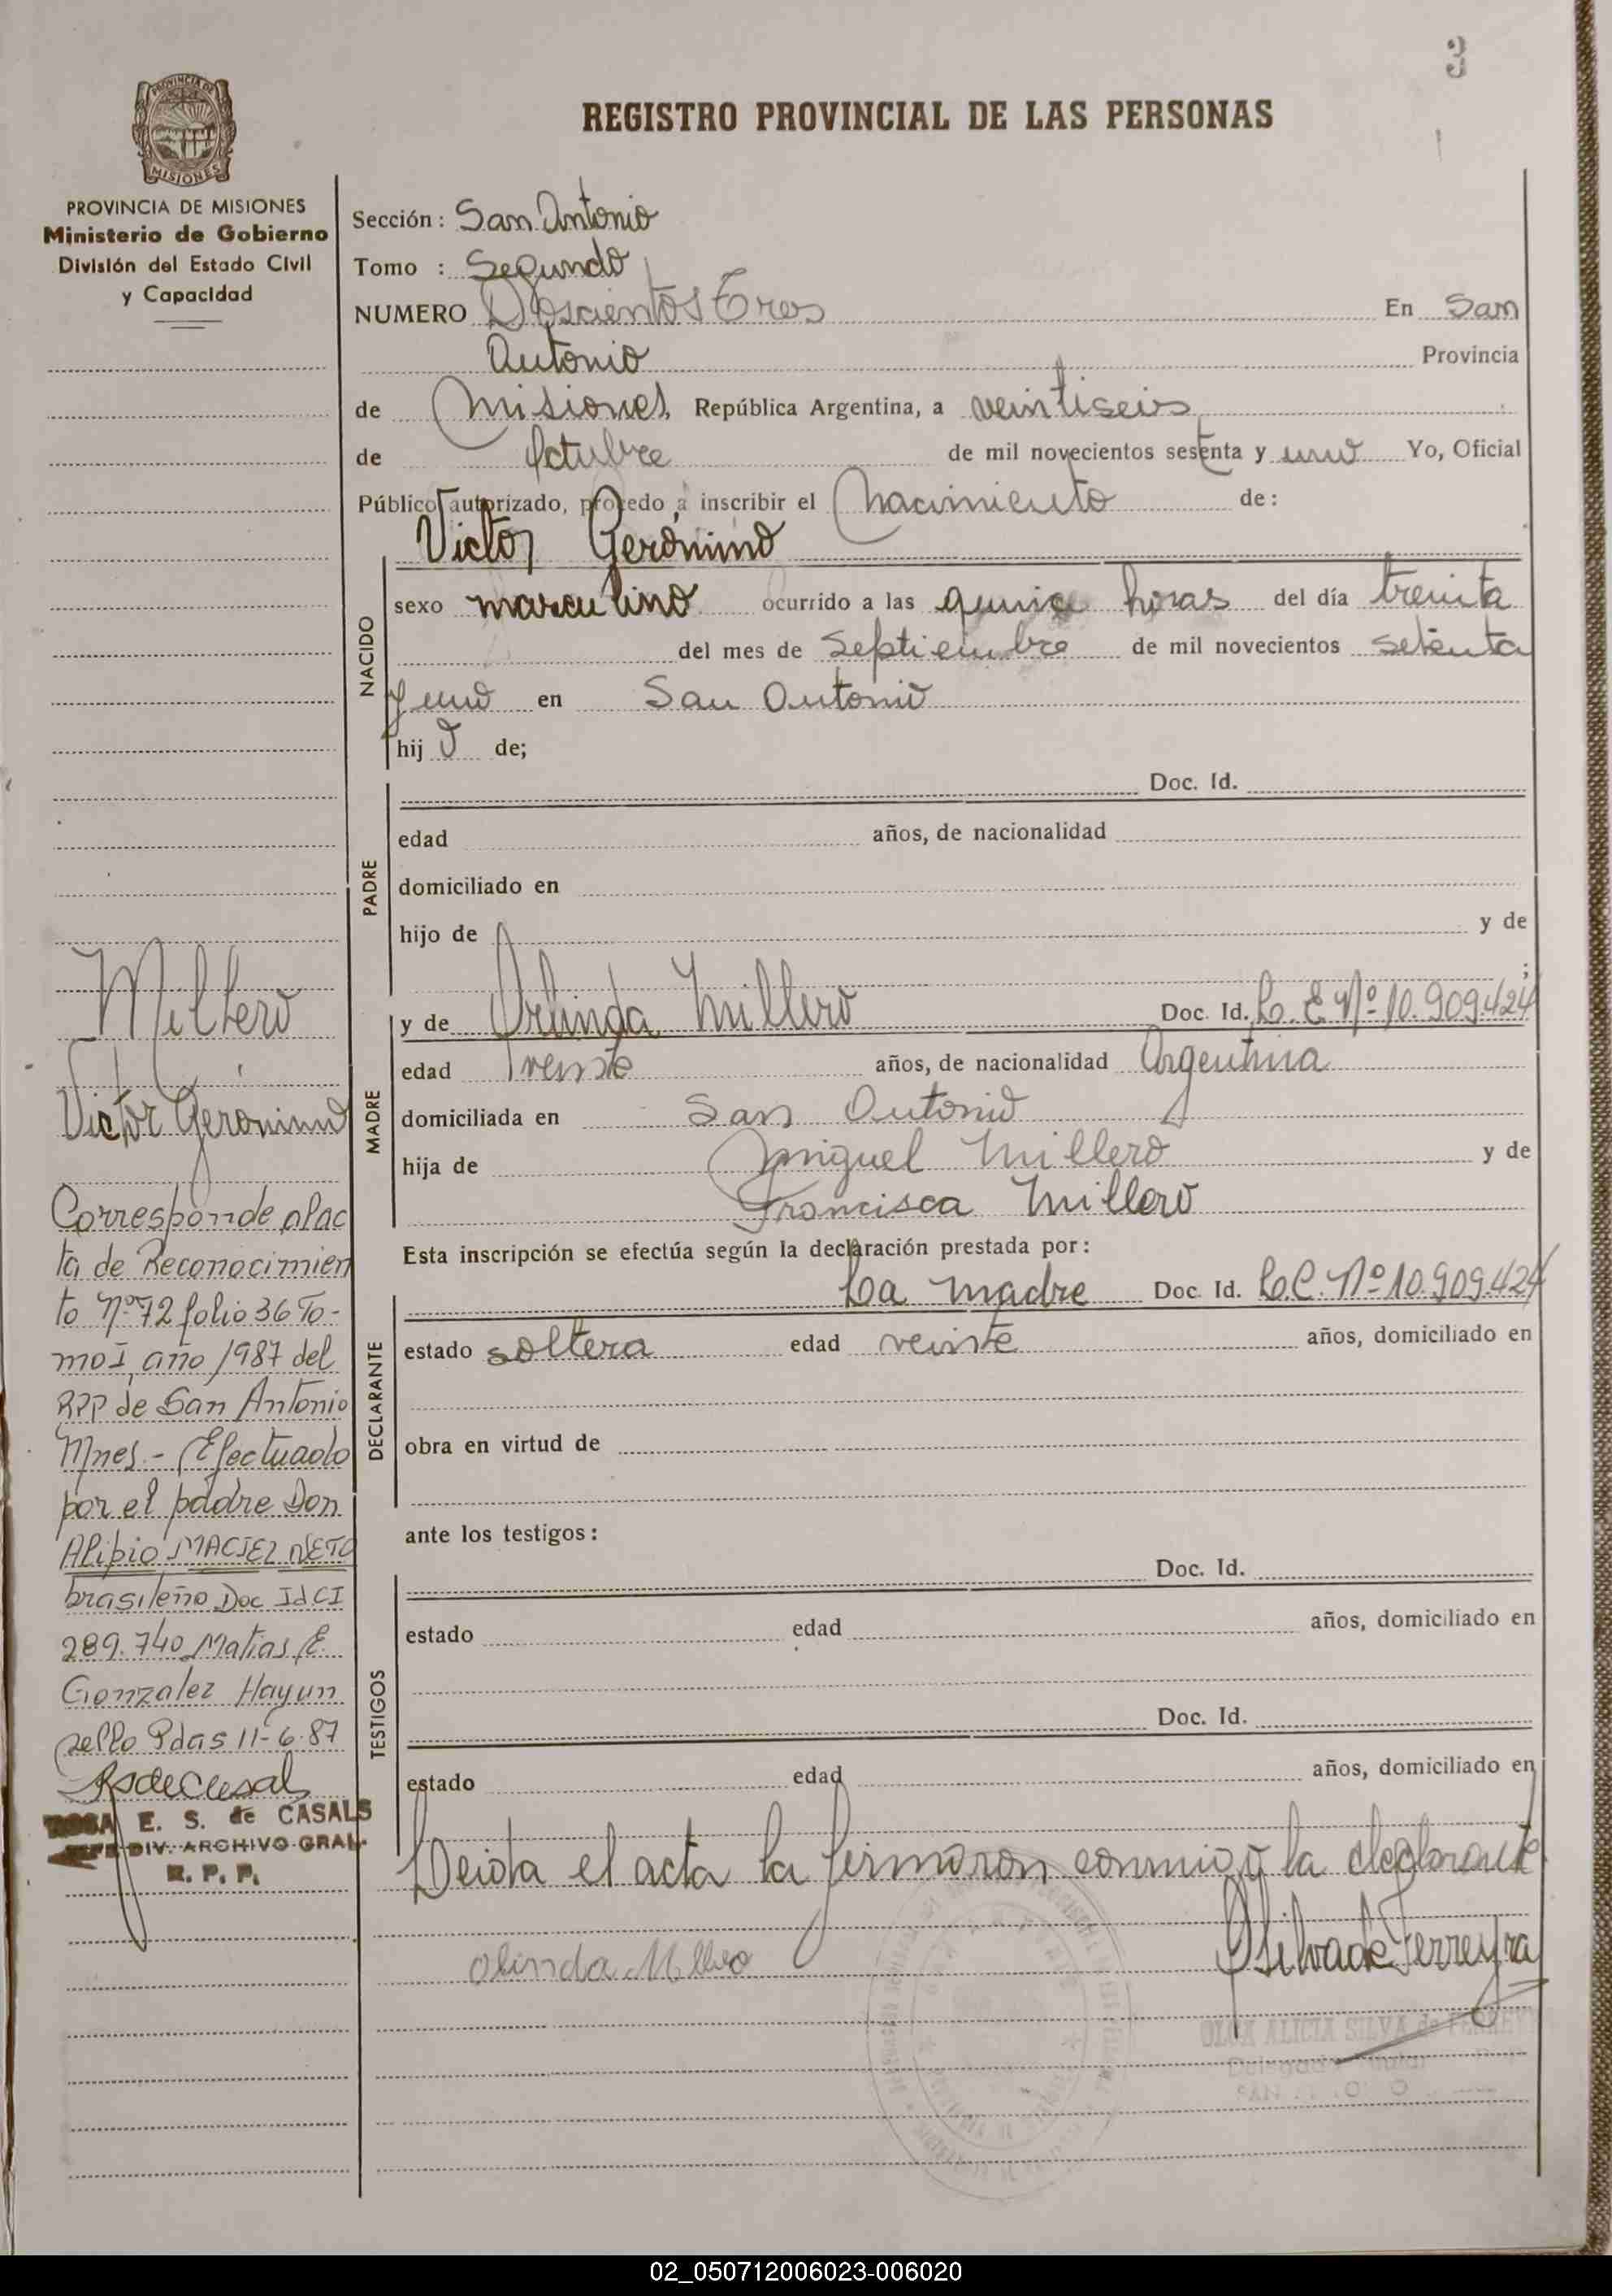 3
REGISTRO PROVINCIAL DE LAS PERSONAS
PROVINCIA DE
MISIONES
PROVINCIA DE MISIONES
Ministerio de Gobierno
División del Estado Civil
y Capacidad
Sección : San Antonio
Tomo : Segundo
NUMERO Doscientos Tres En San
Antonio Provincia
de Misiones República Argentina, a veintiseis
de Octubre de mil novecientos sesenta y uno Yo, Oficial
Público autorizado, procedo a inscribir el Nacimiento de :
Victor Gerónimo
NACIDO
sexo masculino ocurrido a las quince horas del día treinta
del mes de Septiembre de mil novecientos setenta
y uno en San Antonio
hij o de;
PADRE
Doc. Id.
edad años, de nacionalidad
domiciliado en
hijo de y de
;
MADRE
y de Orlinda Millero Doc. Id. L. E Nº 10.909.424
edad Veinte años, de nacionalidad Argentina
domiciliada en San Antonio
hija de Miguel Millero y de
Francisca Millero
Esta inscripción se efectúa según la declaración prestada por :
DECLARANTE
La madre Doc. Id. L.C. Nº 10.909.424
estado soltera edad veinte años, domiciliado en
obra en virtud de
ante los testigos :
TESTIGOS
Doc. Id.
estado edad años, domiciliado en
Doc. Id.
estado edad años, domiciliado en
Leida el acta la firmaron conmigo la declarante
Olinda Millero
OSilva de Ferreyra
OLGA ALICIA SILVA de FERREY
Millero
Victor Gerónimo
Corresponde al ac
ta de Reconocimien
to Nº 72 folio 36 To-
mo I, año 1987 del
RPP de San Antonio
Mnes.- Efectuado
por el padre Don
Alipio MACIEL NETO
brasileño Doc Id CI
289.740 Matias E.
Gonzalez Hay un
sello Pdas 11-6-87
ROSA E. S. de CASALS
JEFE DIV. ARCHIVO GRAL.
R. P. P.
02_050712006023-006020